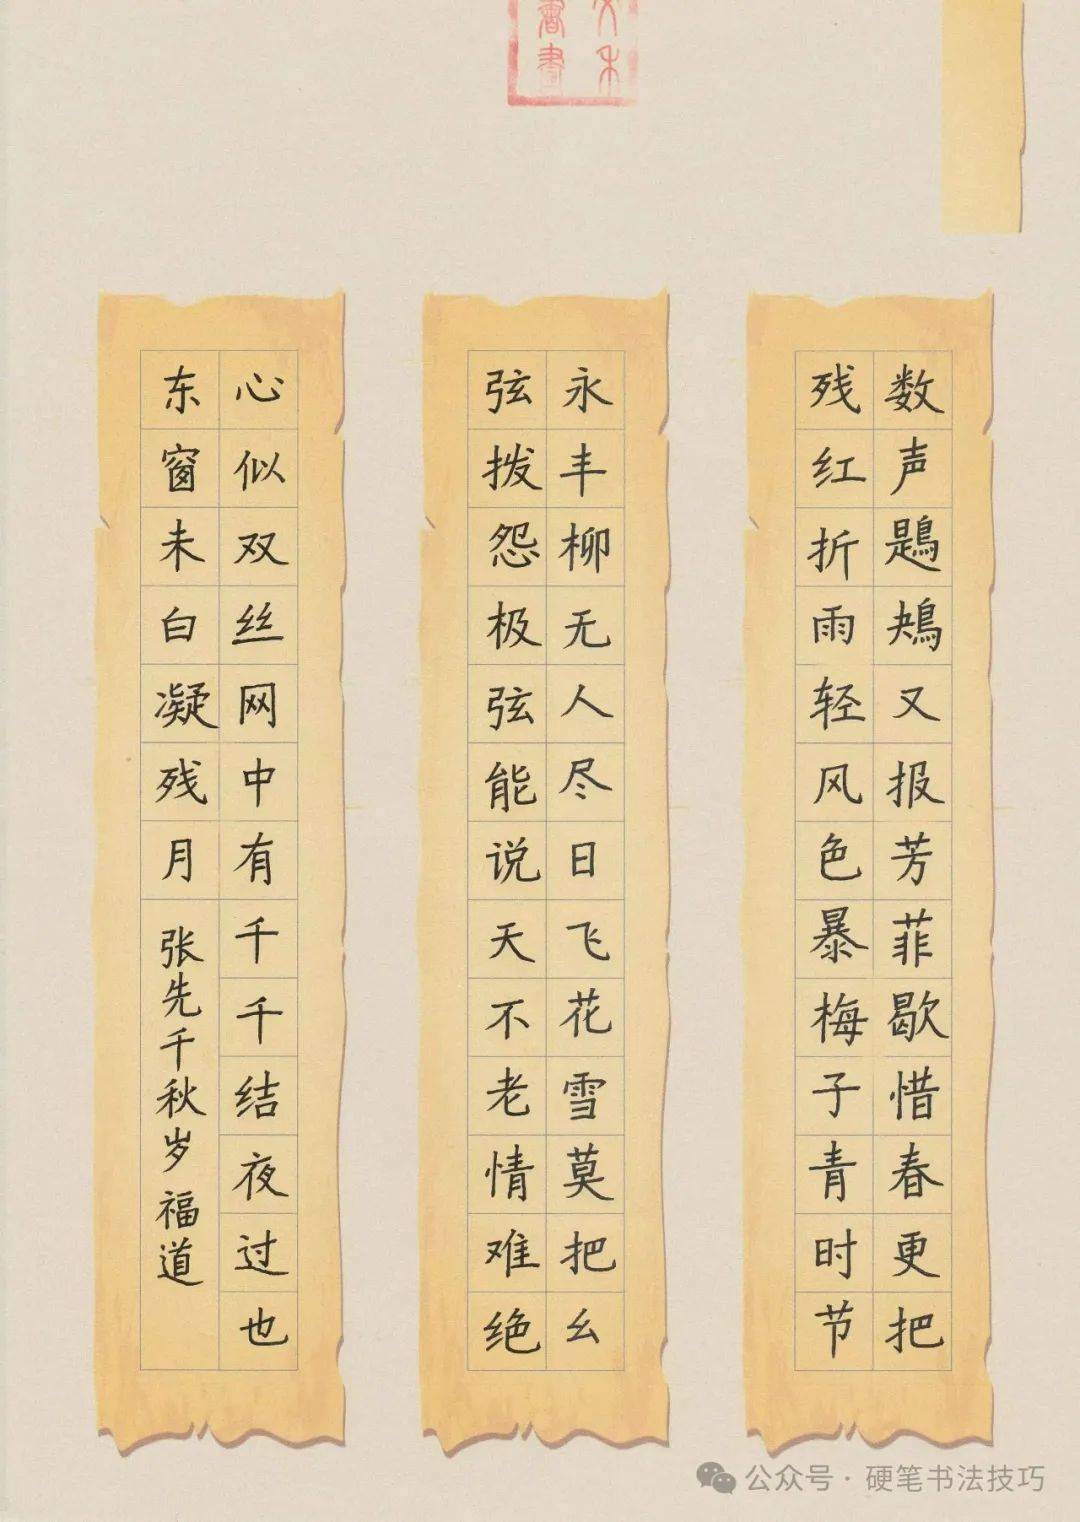 数声鶗鴂又报芳菲歇惜春更把
残红折雨轻风色暴梅子青时节
永丰柳无人尽日飞花雪莫把幺
弦拨怨极弦能说天不老情难绝
心似双丝网中有千千结夜过也
东窗未白凝残月 张先千秋岁 福道
公众号·硬笔书法技巧